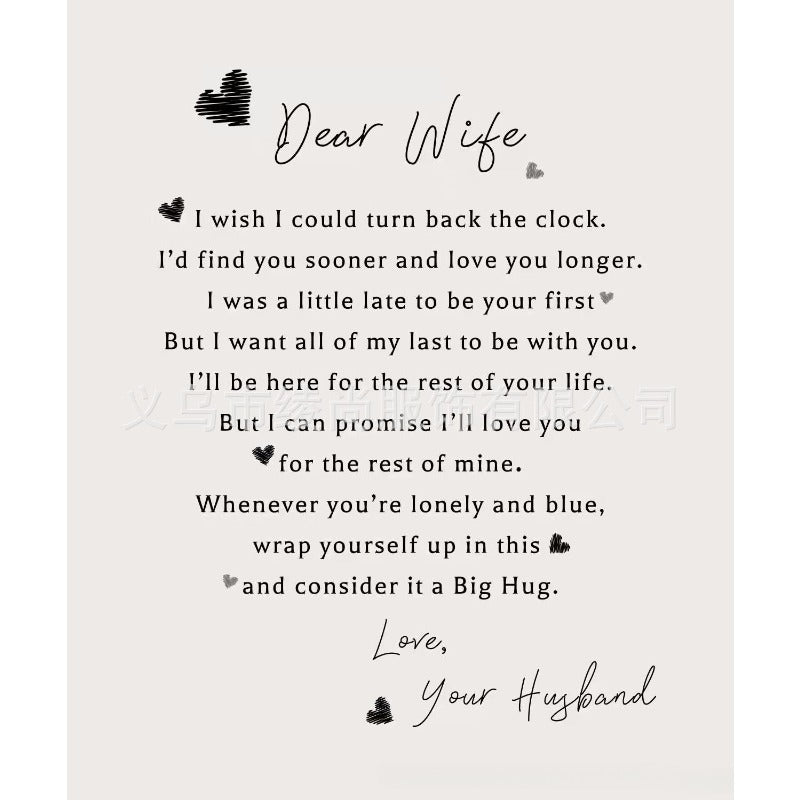 Dear Wife
I wish I could turn back the clock.
I'd find you sooner and love you longer.
I was a little late to be your first
But I want all of my last to be with you.
I'll be here for the rest of your life.
义乌市绫尚服饰有限公司
But I can promise I'll love you
for the rest of mine.
Whenever you're lonely and blue,
wrap yourself up in this
and consider it a Big Hug.
Love,
Your Husband